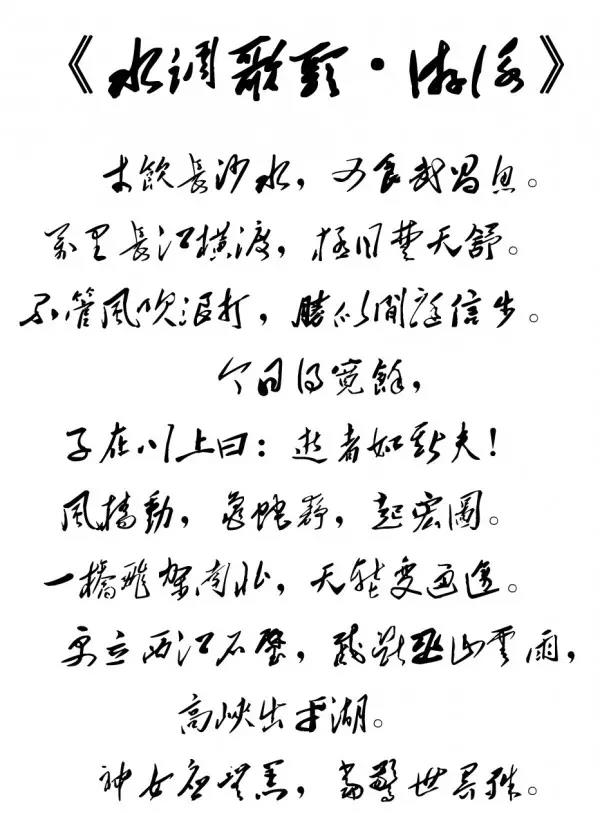 《水調歌頭·游泳》
才飲長沙水，又食武昌魚。
萬里長江橫渡，極目楚天舒。
不管風吹浪打，勝似閒庭信步。
今日得寬餘，
子在川上曰：逝者如斯夫！
風檣動，龜蛇靜，起宏圖。
一橋飛架南北，天塹變通途。
更立西江石壁，截斷巫山雲雨，
高峽出平湖。
神女應無恙，當驚世界殊。